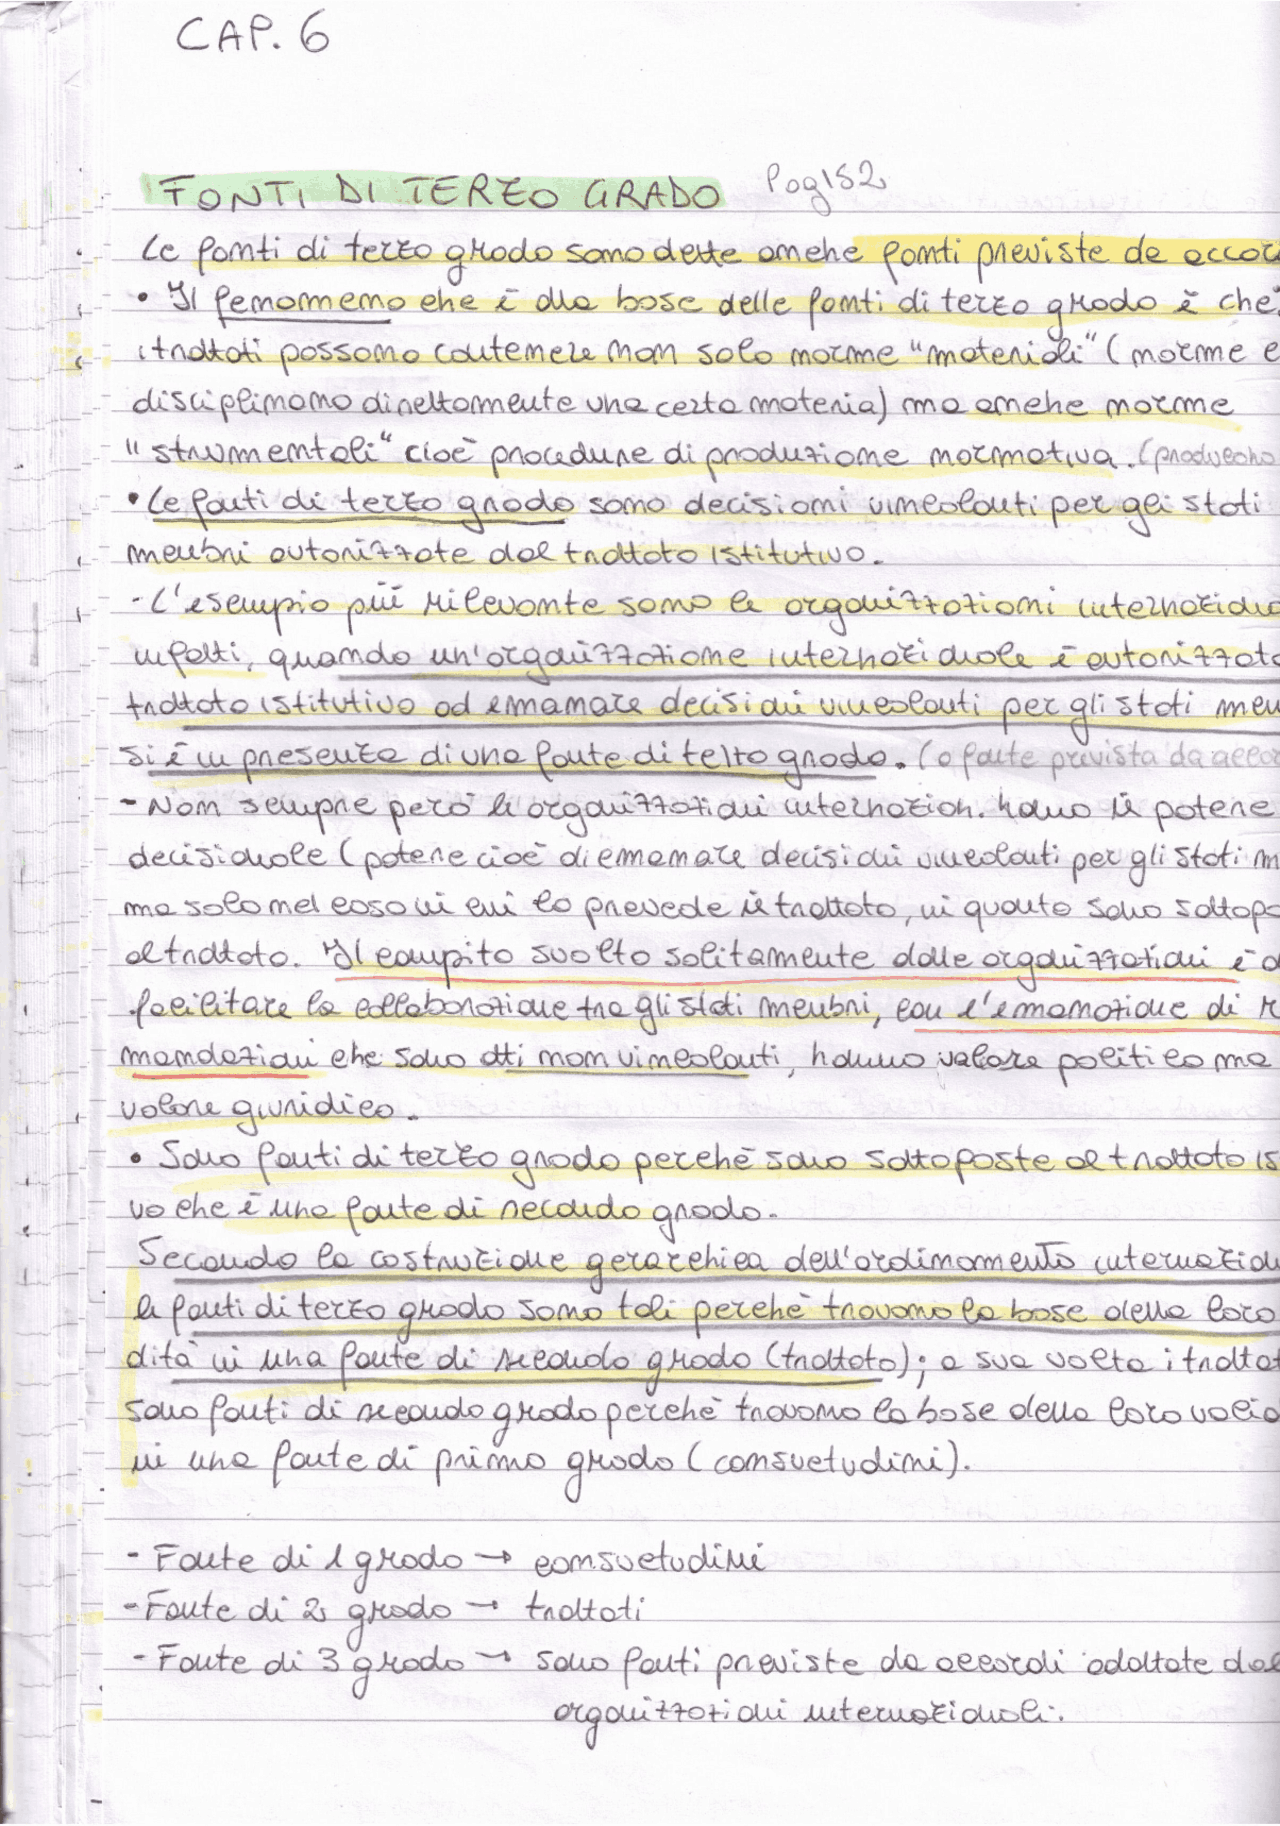 CAP. 6
FONTI DI TERZO GRADO Pag 152
Le fonti di terzo grado sono dette anche fonti previste da accor
• Il fenomeno che è alla base delle fonti di terzo grado è che
i trattati possono contenere non solo norme "materiali" (norme c
disciplinano direttamente una certa materia) ma anche norme
"strumentali" cioè procedure di produzione normativa. (producono
• Le fonti di terzo grado sono decisioni vincolanti per gli stati
membri autorizzate dal trattato istitutivo.
- L'esempio più rilevante sono le organizzazioni internaziona
infatti, quando un'organizzazione internazionale è autorizzata
trattato istitutivo ad emanare decisioni vincolanti per gli stati mem
si è in presenza di una fonte di terzo grado. (o fonte prevista da accor
- Non sempre però le organizzazioni internazion. hanno il potere
decisionale (potere cioè di emanare decisioni vincolanti per gli stati m
ma solo nel caso in cui lo prevede il trattato, in quanto sono sottopo
al trattato. Il compito svolto solitamente dalle organizzazioni è d
facilitare la collaborazione tra gli stati membri, con l'emanazione di r
mandazioni che sono atti non vincolanti, hanno valore politico ma
valore giuridico.
• Sono fonti di terzo grado perchè sono sottoposte al trattato is
vo che è una fonte di secondo grado.
Secondo la costruzione gerarchica dell'ordinamento internazion
le fonti di terzo grado sono tali perchè trovano la base della loro
dità in una fonte di secondo grado (trattato); a sua volta i trattat
sono fonti di secondo grado perchè trovano la base della loro valid
in una fonte di primo grado (consuetudini).
- Fonte di 1 grado → consuetudini
- Fonte di 2 grado → trattati
- Fonte di 3 grado → sono fonti previste da accordi adottate dal
organizzazioni internazionali.